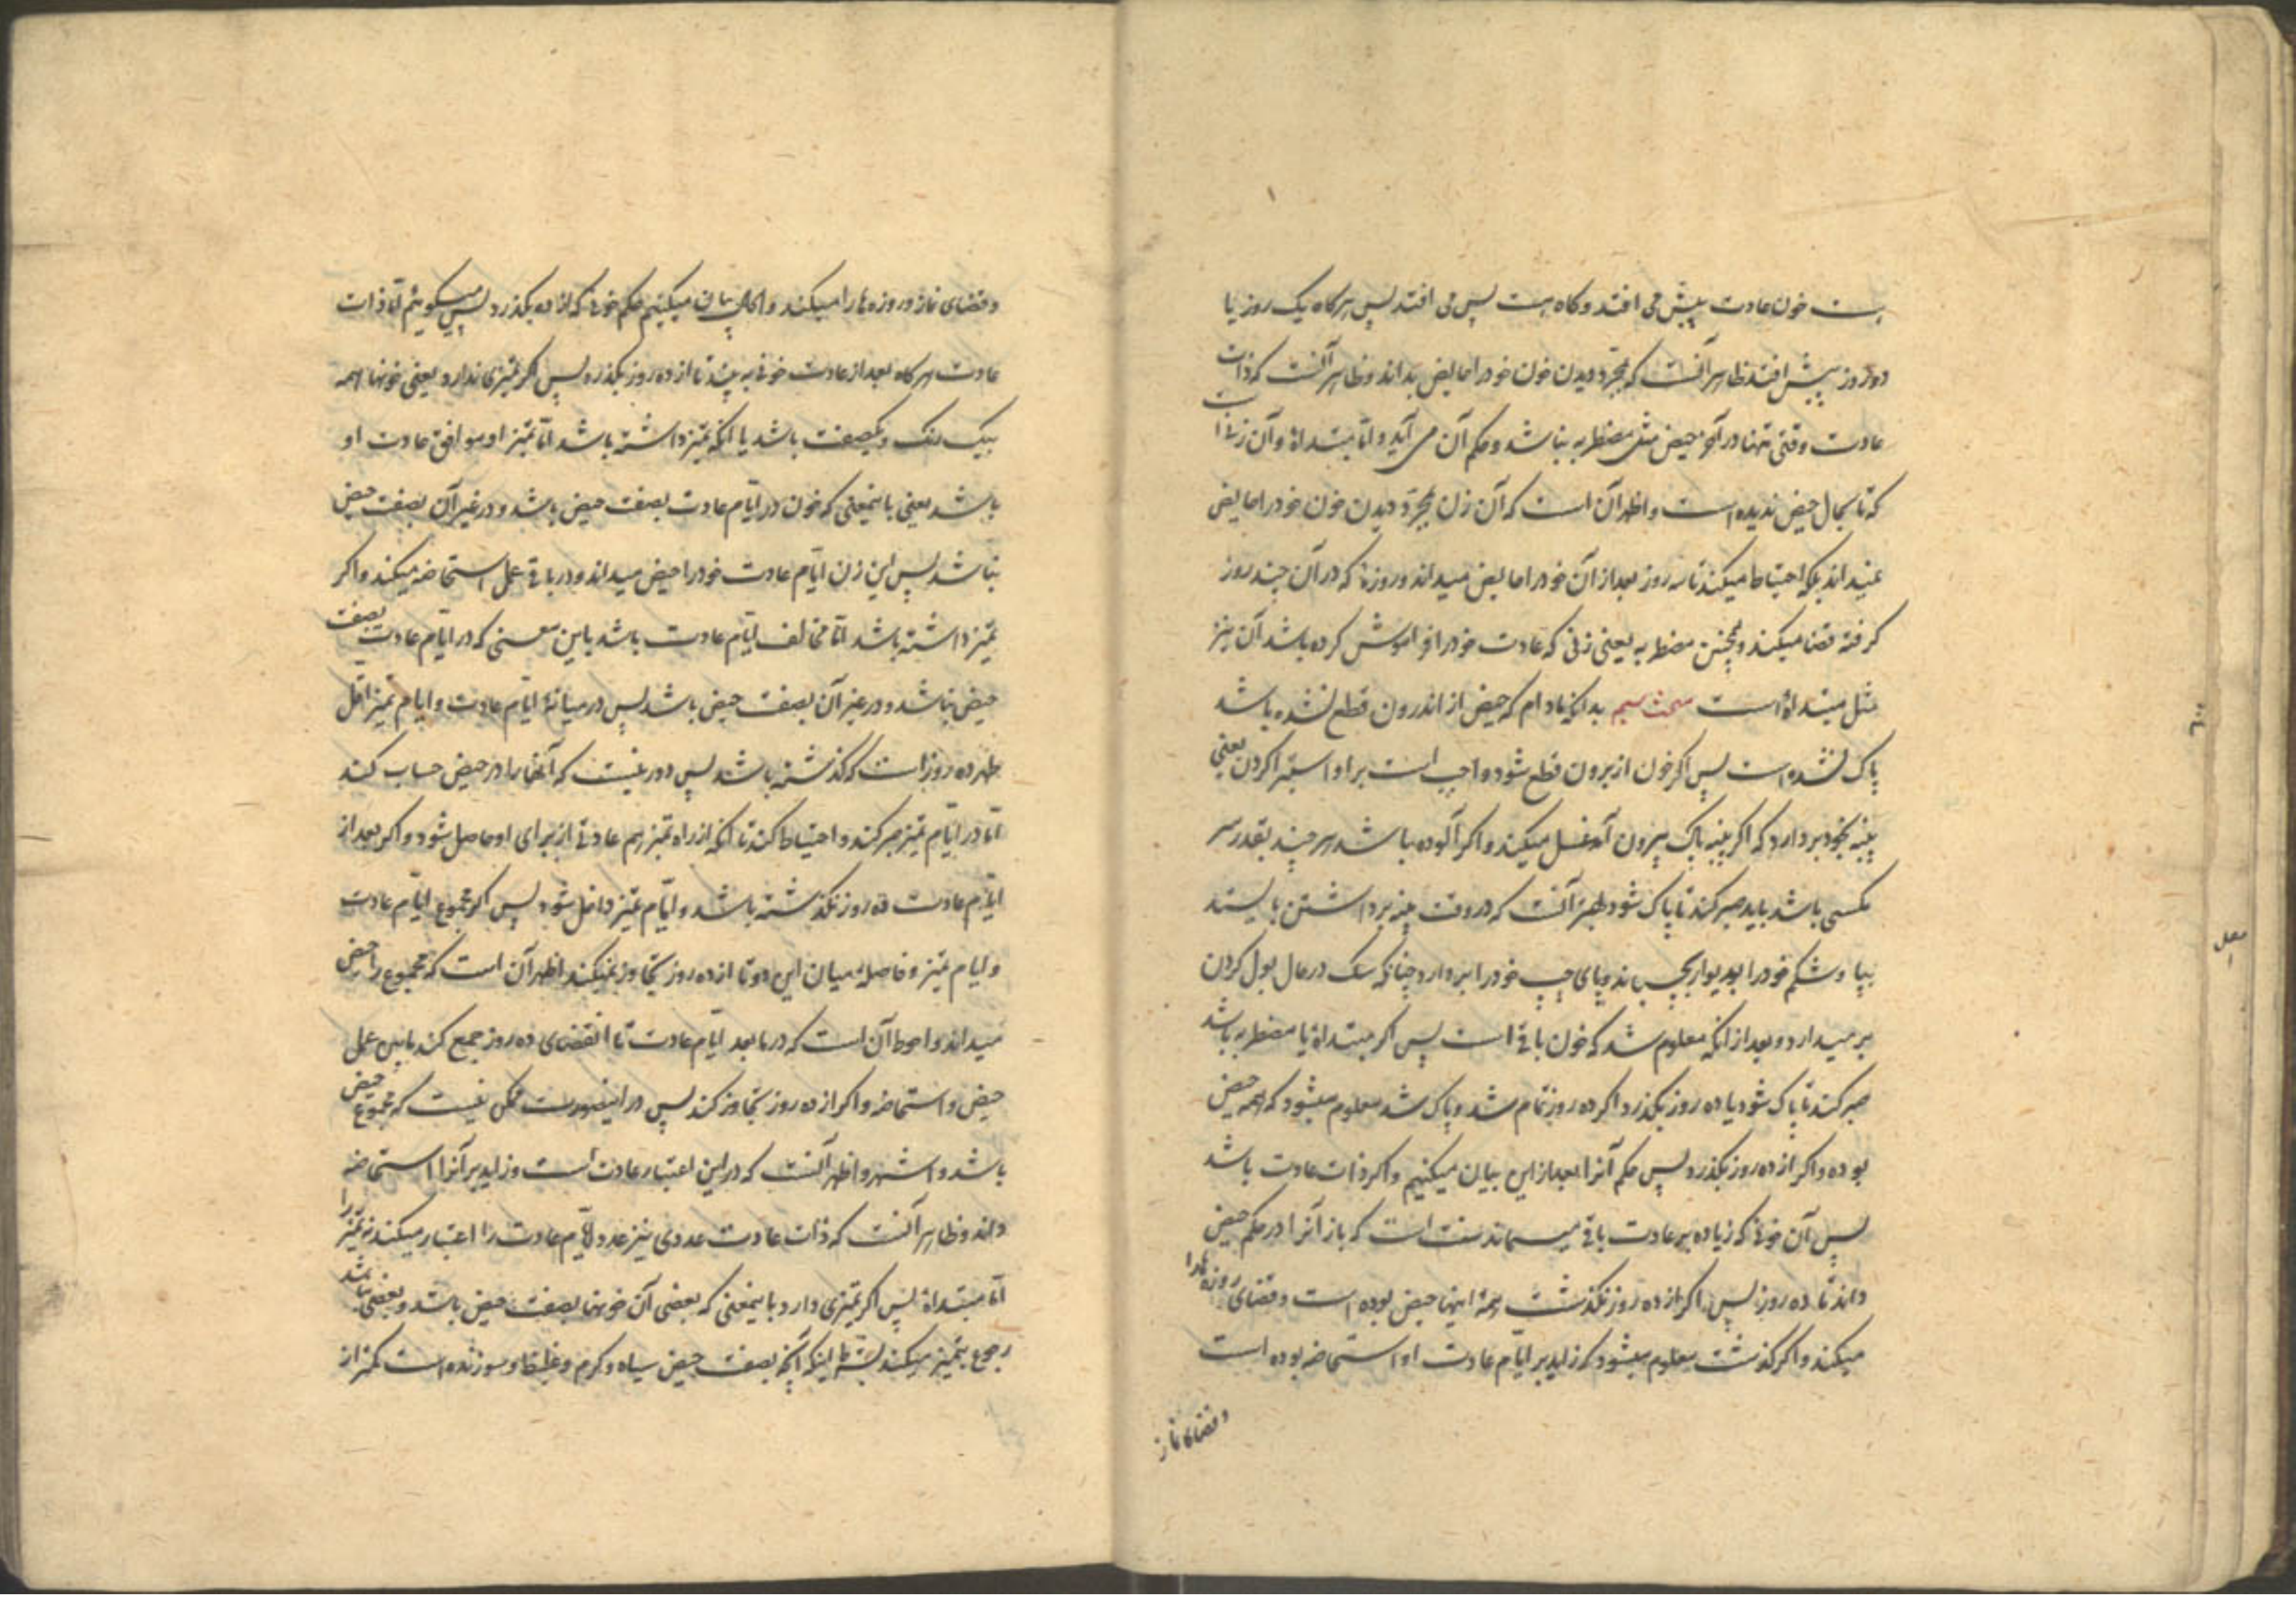 ہست خون عادت پیش می افتد و کاه ہست پس می افتد پس ہرکاه یک روز یا
دو روز پیش افتد ظاہر آنست که بمجرّد دیدن خون خود را حایض بداند و ظاہر آنست که ذات
عادت وقتی تنها در آخر حیض مثل مضطربه نباشد و حکم آن می آید و امّا مبتداة و آن زنی است
که تا بحال حیض ندیده است و اظهر آن است که آن زن بمجرّد دیدن خون خود را حایض
نمیداند بلکه احتیاط میکند تا سه روز بعد از آن خود را حایض میداند و روزۀ که در آن چند روز
کرفته قضا میکند و همچنین مضطربه یعنی زنی که عادت خود را فراموش کرده باشد آن نیز
مثل مبتداة است مبحث سیم بدانکه مادام که حیض از اندرون قطع نشده باشد
پاک نشده است پس اکر خون از برون قطع شود واجب است بر او استبرا کردن یعنی
پنبه بخود بردارد که اکر پنبه پاک بیرون آمد غسل میکند و اکر آلوده باشد ہر چند بقدر سر
مکسی باشد باید صبر کند تا پاک شود و بهتر آنست که در وقت پنبه برداشتن بایستد
بپا و شکم خود را بدیوار بچسباند و پای چپ خود را بردارد چنانکه سک در حال بول کردن
بر میدارد و بعد از انکه معلوم شد که خون باقی است پس اکر مبتداة یا مضطربه باشد
صبر کند تا پاک شود یا ده روز بکذرد اکر ده روز تمام شد و پاک شد معلوم میشود که همه حیض
بوده و اکر از ده روز بکذرد پس حکم آنرا بعد از این بیان میکنیم و اکر ذات عادت باشد
پس آن خونی که زیاده بر عادت باقی میماند سنت است که باز آنرا در حکم حیض
داند تا ده روز پس اکر از ده روز نکذشت همۀ اینها حیض بوده است و قضای روزه ها را
میکند و اکر کذشت معلوم میشود که زاید بر ایّام عادت او استحاضه بوده است
و قضای نماز
و قضای نماز و روزه ها را میکند و الحال بیان میکنیم حکم خونی که از ده بکذرد پس میکویئم امّا ذات
عادت ہر کاه بعد از عادت خونی به بیند تا از ده روز بکذرد پس اکر تمیزی ندارد یعنی خونها همه
بیک رنک و یکصفت باشد یا انکه تمیز داشته باشد امّا تمیز او موافق عادت او
باشد یعنی باینمعنی که خون در ایّام عادت بصفت حیض باشد و در غیر آن بصفت حیض
نباشد پس این زن ایّام عادت خود را حیض میداند و در باقی عمل استحاضه میکند و اکر
تمیز داشته باشد امّا مخالف ایّام عادت باشد باین معنی که در ایّام عادت بصفت
حیض نباشد و در غیر آن بصفت حیض باشد پس در میانۀ ایّام عادت و ایام تمیز اقل
طهر ده روز است که کذشته باشد پس دور نیست که آنها را در حیض حساب کند
امّا در ایّام تمیز صبر کند و احتیاط کند تا انکه از راه تمیز هم عادتی از برای او حاصل شود و اکر بعد از
ایّام عادت ده روز نکذشته باشد و ایّام تمیز داخل شود پس اکر مجموع ایّام عادت
و ایام تمیز و فاصلۀ میان این دو تا از ده روز تجاوز نمیکند اظهر آن است که مجموع را حیض
میداند و احوط آن است که در ما بعد ایّام عادت تا انقضای ده روز جمع کند مابین عمل
حیض و استحاضه و اکر از ده روز تجاوز کند پس در اینصورت ممکن نیست که مجموع حیض
باشد و اشهر و اظهر آنست که در این اعتبار عادت است و زاید بر آنرا استحاضه
داند و ظاہر آنست که ذات عادت عددی نیز عدد لایّام عادت را اعتبار میکند نه تمیز را
امّا مبتداة پس اکر تمیزی دارد باینمعنی که بعضی آن خونها بصفت حیض باشد و بعضی نباشد
رجوع بتمیز میکند بشرط اینکه آنچه بصفت حیض سیاه و کرم و غلیظ و سوزنده است کمتر از